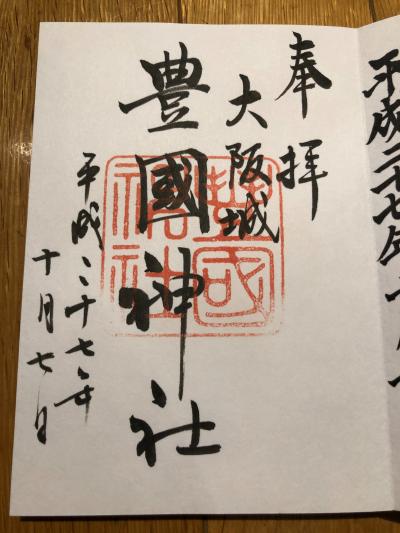 平成二十七年十
奉拝
大阪城
豊國神社
平成二十七年
十月七日
豊國
神社